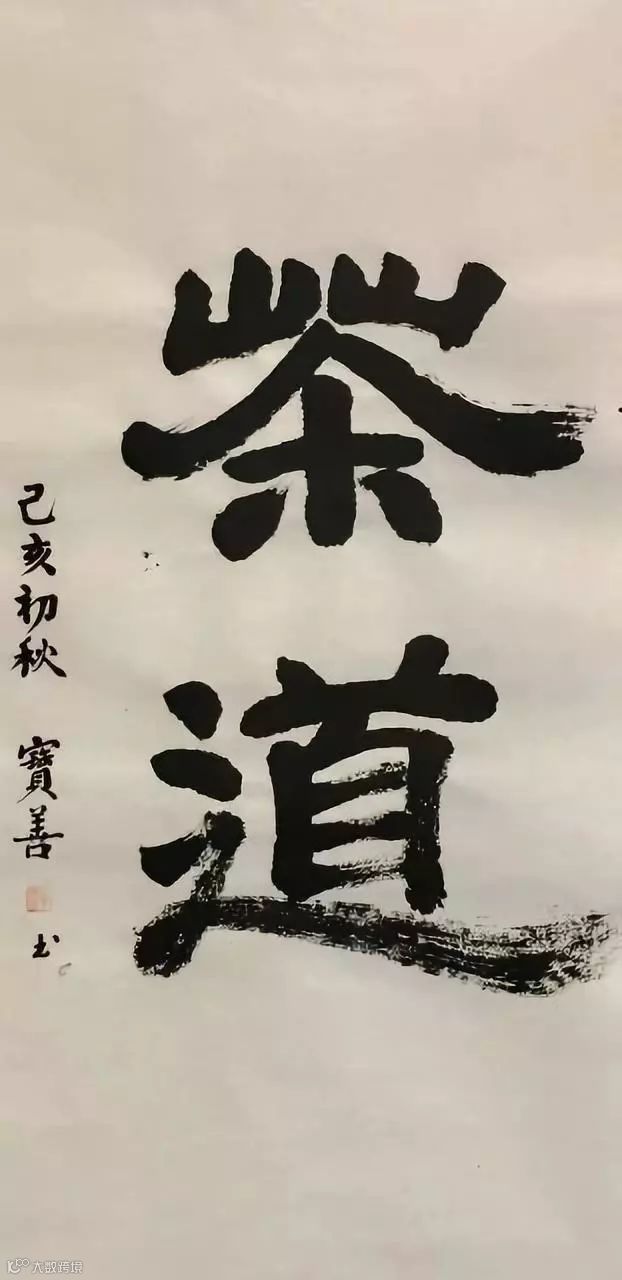 茶道
己亥初秋 寶善 书
K100 大数跨境